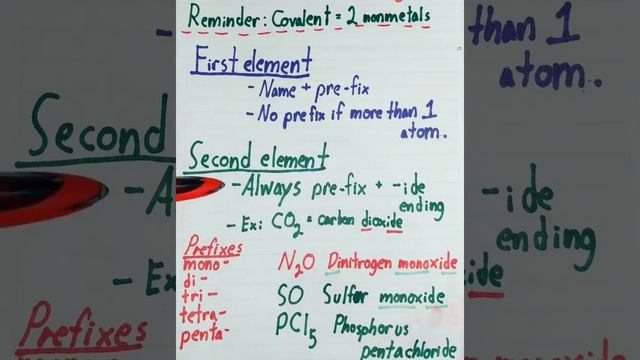 Reminder: Covalent = 2 nonmetals
First element
- Name + pre-fix
- No prefix if more than 1
atom.
Second element
- Always pre-fix + -ide
ending
- Ex: CO2 = carbon dioxide
Prefixes
mono-
di-
tri-
tetra-
penta-
N2O Dinitrogen monoxide
SO Sulfur monoxide
PCl5 Phosphorus
pentachloride